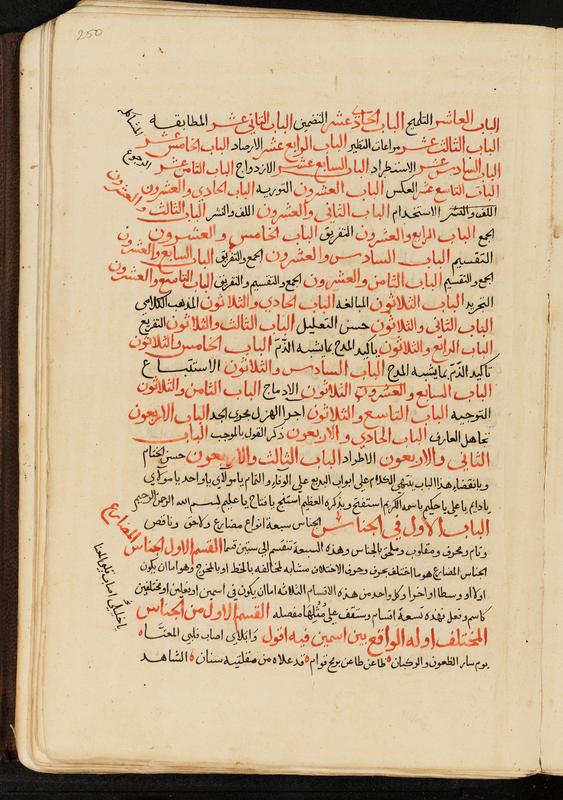 250
الباب العاشر التلميح الباب الحادي عشر التضمين الباب الثاني عشر المطابقة
المشاكله
الباب الثالث عشر مراعات النظير الباب الرابع عشر الارصاد الباب الخامس عشر
الباب السادس عشر الاستطراد الباب السابع عشر الازدواج الباب الثامن عشر الرجوع
الباب التاسع عشر العكس الباب العشرون التوريه الباب الحادي والعشرون
اللف والنشر الاستخدام الباب الثاني والعشرون اللف والنشر الباب الثالث والعشرون
الجمع الباب الرابع والعشرون التفريق الباب الخامس والعشرون
التقسيم الباب السادس والعشرون الجمع والتفريق الباب السابع والعشرون
الجمع والتقسيم الباب الثامن والعشرون الجمع والتقسيم والتفريق الباب التاسع والعشرون
التجريد الباب الثلاثون المبالغه الباب الحادي والثلاثون المذهب الكلامي
الباب الثاني والثلاثون حسن التعليل الباب الثالث والثلاثون التفريع
الباب الرابع والثلاثون تاكيد المدح بمايشبه الذم الباب الخامس والثلاثون
تاكيد الذم بمايشبه المدح الباب السادس والثلاثون الاستتباع
الباب السابع والعشرون الثلاثون الادماج الباب الثامن والثلاثون
التوجيه الباب التاسع والثلاثون اجرا الهزل مجرى الجد الباب الاربعون
تجاهل العارف الباب الحادي والاربعون ذكر القول بالموجب الباب
الثاني والاربعون الاطراد الباب الثالث والاربعون حسن الختام
وبانقضاء هذا الباب ينتهي الكلام على ابواب البديع على الوفاء والتمام يامولاي ياواحد يامولاي
يادايم ياعلي ياحكيم باسمه الكريم استفتح وبذكره العظيم استنجح يافتاح ياعليم بسم الله الرحمن الرحيم
الباب الاول في الجناس الجناس سبعة انواع مضارع ولاحق وناقص
وتام ومحرف ومقلوب وملحق بالجناس وهذه السبعة تنقسم الى ستين قسما القسم الاول الجناس المضارع
الجناس المضارع هو ما اختلف بحرف وحرف الاختلاف مشابه لمخالفه بالخط او بالمخرج وهو اما ان يكون
اولا او وسطا او اخرا وكل واحد من هذه الاقسام الثلاثه اما ان يكون في اسمين او فعلين او مختلفين
كاسم وفعل فهذه تسعة اقسام وستقف على مثلها مفصله القسم الاول من الجناس
المختلف اوله الواقع بين اسمين فيه اقول وابلاي اصاب قلبي المعنا
يوم سار الظعون والركبان طاعن طاعن برمح قوام قد علاه من مقلتيه سنان الشاهد
ياخليلي اصاب قلبي المعنا